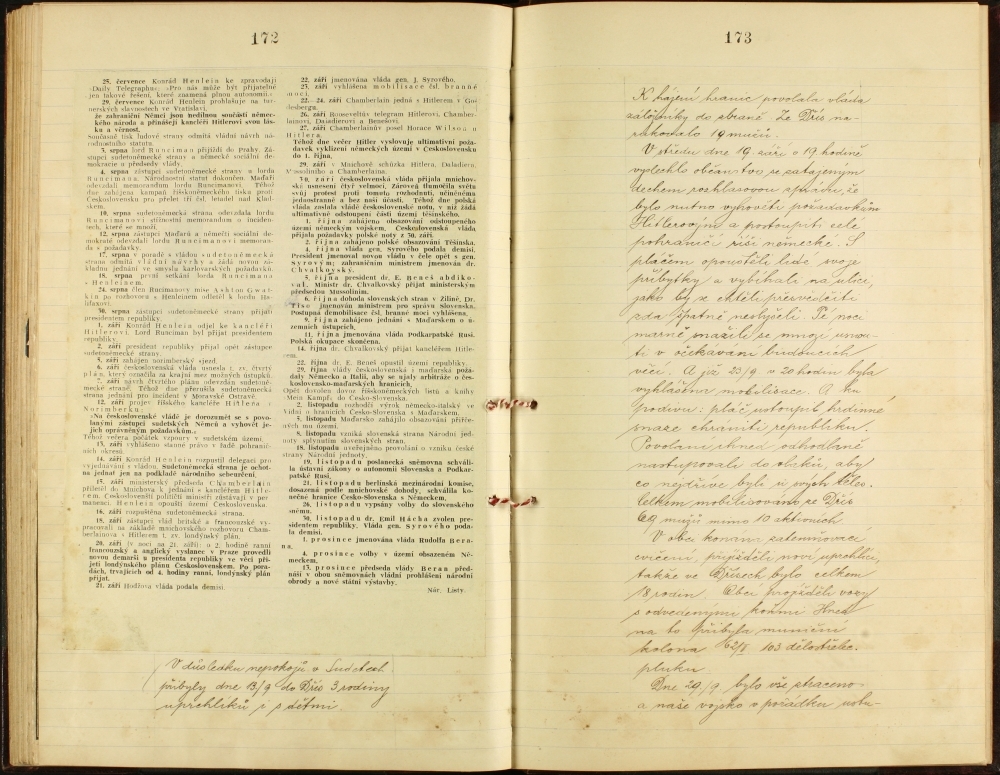 172
25. července Konrád Henlein ke zpravodaji
»Daily Telegraphu«. »Pro nás může být přijatelné
jen takové řešení, které znamená plnou autonomii.«
29. července Konrád Henlein prohlašuje na tur-
nerských slavnostech ve Vratislavi,
že zahraniční Němci jsou nedílnou součástí němec-
kého národa a přinášejí kancléři Hitlerovi svou lás-
ku a věrnost.
Současně tisk ludové strany odmítá vládní návrh ná-
rodnostního statutu.
3. srpna lord Runciman přijíždí do Prahy. Zá-
stupci sudetoněmecké strany a německé sociální de-
mokracie u předsedy vlády.
4. srpna zástupci sudetoněmecké strany u lorda
Runcimana. Národnostní statut dokončen. Maďaři
odevzdali memorandum lordu Runcimanovi. Téhož
dne zahájena kampaň říšskoněmeckého tisku proti
Československu pro přelet tří čsl. letadel nad Klad-
skem.
10. srpna sudetoněmecká strana odevzdala lordu
Runcimanovi stížnostní memorandum o inciden-
tech, které se množí.
12. srpna zástupci Maďarů a němečtí sociální de-
mokraté odevzdali lordu Runcimanovi memoran-
da s požadavky.
17. srpna v poradě s vládou sudetoněmecká
strana odmítá vládní návrhy a žádá novou zá-
kladnu jednání ve smyslu karlovarských požadavků.
18. srpna první setkání lorda Runcimana
s Henleinem.
24. srpna člen Rucimanovy mise Ashton Gwat-
kin po rozhovoru s Henleinem odletěl k lordu Ha-
lifaxovi.
30. srpna zástupci sudetoněmecké strany přijati
presidentem republiky.
1. září Konrád Henlein odjel ke kancléři
Hitlerovi. Lord Runciman byl přijat presidentem
republiky.
2. září president republiky přijal opět zástupce
sudetoněmecké strany.
5. září zahájen norimberský sjezd.
6. září československá vláda usnesla t. zv. čtvrtý
plán, který označila za krajní mez možných ústupků.
7. září návrh čtvrtého plánu odevzdán sudetoně-
mecké straně. Téhož dne přerušila sudetoněmecká
strana jednání pro incident v Moravské Ostravě.
12. září projev říšského kancléře Hitlera v
Norimberku:
»Na československé vládě je dorozumět se s povo-
lanými zástupci sudetských Němců a vyhovět je-
jich oprávněným požadavkům.«
Téhož večera počátek vzpoury v sudetském území.
13. září vyhlášeno stanné právo v řadě pohranič-
ních okresů.
14. září Konrád Henlein rozpustil delegaci pro
vyjednávání s vládou. Sudetoněmecká strana je ochot-
na jednat jen na podkladě národního sebeurčení.
15. září ministerský předseda Chamberlain
přiletěl do Mnichova k jednání s kancléřem Hitle-
rem. Českoslovenští političtí ministři zůstávají v per-
manenci. Henlein opouští území Československa.
16. září rozpuštěna sudetoněmecká strana.
18. září zástupci vlád britské a francouzské vy-
pracovali na základě mnichovského rozhovoru Cham-
berlainova s Hitlerem t. zv. londýnský plán.
20. září (v noci na 21. září): o 2. hodině ranní
francouzský a anglický vyslanec v Praze provedli
novou demarši u presidenta republiky ve věci při-
jetí londýnského plánu Československem. Po pora-
dách, trvajících od 4. hodiny ranní, londýnský plán
přijat.
21. září Hodžova vláda podala demisi.
22. září jmenována vláda gen. J. Syrového.
23. září vyhlášena mobilisace čsl. branné
moci.
22.–24. září Chamberlain jedná s Hitlerem v Go-
desbergu.
26. září Rooseveltův telegram Hitlerovi, Chamber-
lainovi, Daladierovi a Benešovi.
27. září Chamberlainův posel Horace Wilson u
Hitlera.
Téhož dne večer Hitler vyslovuje ultimativní poža-
davek vyklizení německých území v Československu
do 1. října.
29. září v Mnichově schůzka Hitlera, Daladiera,
Mussoliniho a Chamberlaina.
30. září československá vláda přijala mnichov-
ská usnesení čtyř velmocí. Zároveň tlumočila světu
svůj protest proti tomuto rozhodnutí, učiněnému
jednostranně a bez naší účasti. Téhož dne polská
vláda zaslala vládě československé notu, v níž žádá
ultimativně odstoupení části území těšínského.
1. října zahájeno obsazování odstoupeného
území německým vojskem. Československá vláda
přijala požadavky polské noty z 30. září.
2. října zahájeno polské obsazování Těšínska.
4. října vláda gen. Syrového podala demisi.
President jmenoval novou vládu v čele opět s gen.
Syrovým; zahraničním ministrem jmenován dr.
Chvalkovský.
5. října president dr. E. Beneš abdiko-
val. Ministr dr. Chvalkovský přijat ministerským
předsedou Mussolinim.
6. října dohoda slovenských stran v Žilině, Dr.
Tiso jmenován ministrem pro správu Slovenska.
Postupná demobilisace čsl. branné moci vyhlášena.
9. října zahájeno jednání s Maďarskem o ú-
zemních ústupcích.
11. října jmenována vláda Podkarpatské Rusi.
Polská okupace skončena.
14. října dr. Chvalkovský přijat kancléřem Hitle-
rem.
22. října dr. E. Beneš opustil území republiky.
29. října vlády československá i maďarská požá-
daly Německo a Italii, aby se ujaly arbitráže o čes-
koslovensko-maďarských hranicích.
Opět dovolen dovoz říšskoněmeckých listů a knihy
»Mein Kampf« do Česko-Slovenska.
2. listopadu rozhodčí výrok německo-italský ve
Vídni o hranicích Česko-Slovenska s Maďarskem.
5. listopadu Maďarsko zahájilo obsazování přiřče-
ných mu území.
8. listopadu vzniká slovenská strana Národní jed-
noty splynutím slovenských stran.
18. listopadu uveřejněno provolání o vzniku české
strany Národní jednoty.
19. listopadu poslanecká sněmovna schváli-
la ústavní zákony o autonomii Slovenska a Podkar-
patské Rusi.
21. listopadu berlínská mezinárodní komise,
dosazená podle mnichovské dohody, schválila ko-
nečné hranice Česko-Slovenska s Německem.
26. listopadu vypsány volby do slovenského
sněmu.
30. listopadu dr. Emil Hácha zvolen pre-
sidentem republiky. Vláda gen. Syrového poda-
la demisi.
1. prosince jmenována vláda Rudolfa Bera-
na.
4. prosince volby v území obsazeném Ně-
meckem.
13. prosince předseda vlády Beran před-
náší v obou sněmovnách vládní prohlášení národní
obrody a nové státní výstavby.
Nár. Listy.
V důsledku nepokojů v Sudetech
přibyly dne 13/9 do Dřís 3 rodiny
uprchlíků i s dětmi.
173
K hájení hranic povolala vláda
záložníky do zbraně. Ze Dřís na-
rukovalo 19 mužů.
V středu dne 19. září o 19 hodině
vyslechlo občanstvo se zatajeným
dechem rozhlasovou zprávu, že
bylo nutno vyhověti požadavkům
Hitlerovým a postoupiti celé
pohraničí říši německé. S
pláčem opouštěli lidé svoje
příbytky a vybíhali na ulici,
jako by se chtěli přesvědčiti
zda špatně neslyšeli. Té noci
marně snažili se mnozí usnou-
ti v očekávání budoucích
věcí. A již 23/9 v 20 hodin byla
vyhlášena mobilisace. A ku
podivu: pláč ustoupil hrdinné
snaze chrániti republiku.
Povolaní ihned odhodlaně
nastupovali do vlaků, aby
co nejdříve byli u svých těles.
Celkem mobilisováno ze Dřís
69 mužů mimo 10 aktivních
V obci konáno zatemňovací
cvičení. přijížděli noví uprchlíci,
takže ve Dřísech bylo celkem
18 rodin. Obcí projížděli vozy
s odvedenými koňmi. Hned
na to přibyla muniční
kolona 62/II 103 dělostřelec.
pluku.
Dne 29./9. bylo vše ztraceno
a naše vojsko v pořádku ustu-